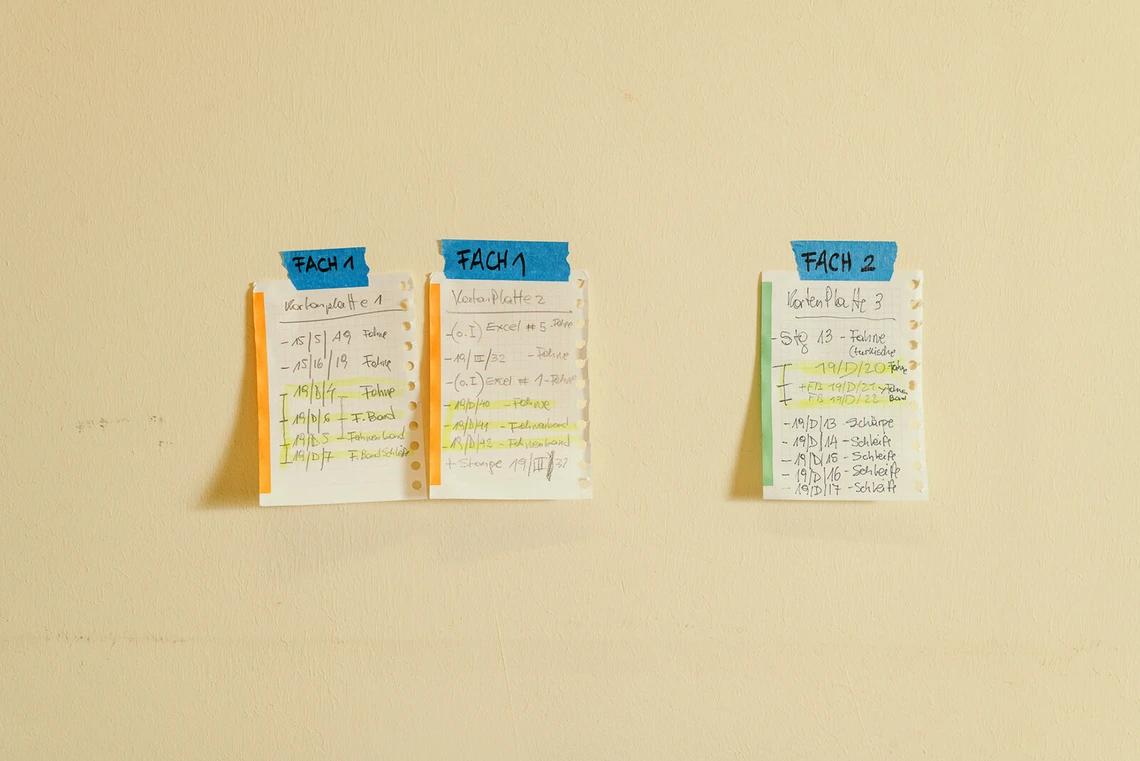 FACH 1
Kartenplatte 1
- 15/5/49 Fahne
- 15/16/19 Fahne
- 19/D/4 Fahne
- 19/D/6 F. Band
- 19/D/5 - Fahnenband
- 19/D/7 F. Band Schleife
FACH 1
KartenPlatte 2
-(o.I) Excel # 5 - Fahne
- 19/III/32 - Fahne
-(o.I) Excel # 1 - Fahne
- 19/D/40 - Fahne
- 19/D/41 - Fahnenband
- 19/D/42 - Fahnenband
+ Stange 19/III/32
FACH 2
KartenPlatte 3
- Stg 13 - Fahne
(türkische
19/D/20 Fahne
+ FB 19/D/21 Fahnen
FB 19/D/22 Band
- 19/D/13 - Schärpe
- 19/D/14 - Schleife
- 19/D/15 - Schleife
- 19/D/16 - Schleife
- 19/D/17 - Schleife